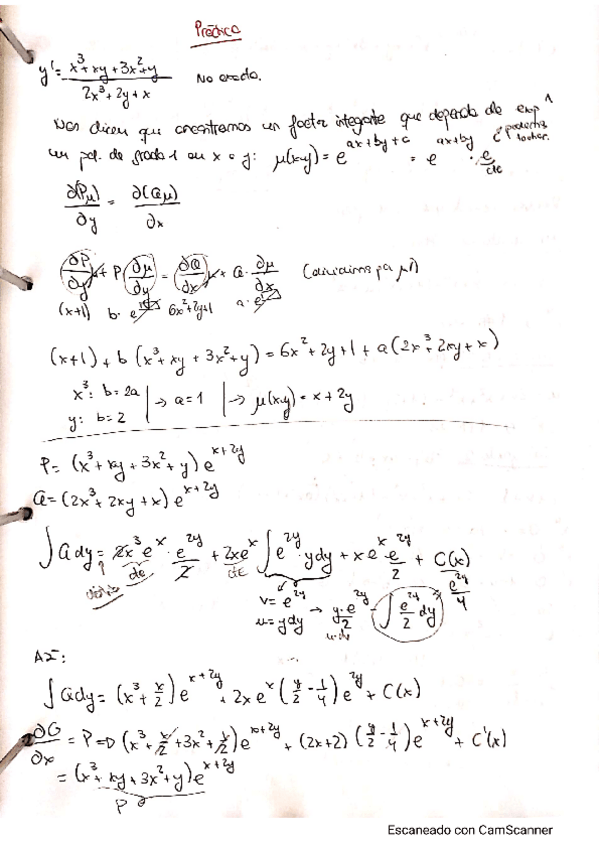 Práctica
y' = x³ + xy + 3x² + y / 2x³ + 2y + x   No exacta.
Nos dicen que encontremos un factor integrante que dependa de exp^
un pol. de grado 1 en x e y: μ(x,y) = e^(ax+by+c) = e^(ax+by) · e^c
cte
∂(Pμ)/∂y = ∂(Qμ)/∂x
∂P/∂y μ + P ∂μ/∂y = ∂Q/∂x μ + Q · ∂μ/∂x   (dividimos por μ!)
(x+1)   b · e   6x²+2y+1   a · e
(x+1) + b (x³ + xy + 3x² + y) = 6x² + 2y + 1 + a (2x³ + 2xy + x)
x³: b = 2a
y: b = 2   → a = 1   → μ(x,y) = x + 2y
P = (x³ + xy + 3x² + y) e^(x+2y)
Q = (2x³ + 2xy + x) e^(x+2y)
∫Q dy = 2x³ e^x · e^(2y)/2 + 2x e^x ∫e^(2y) · y dy + x e^x e^(2y)/2 + C(x)
cte   cte   e^(2y)/4
v = e^(2y) → y · e^(2y)/2 - ∫ e^(2y)/2 dy
u = y dy
Así:
∫Q dy = (x³ + x/2) e^(x+2y) + 2x e^x (y/2 - 1/4) e^(2y) + C(x)
∂G/∂x = P ⇒ (x³ + x/2 + 3x² + 1/2) e^(x+2y) + (2x+2) (y/2 - 1/4) e^(x+2y) + C'(x)
= (x³ + xy + 3x² + y) e^(x+2y)
P
Escaneado con CamScanner